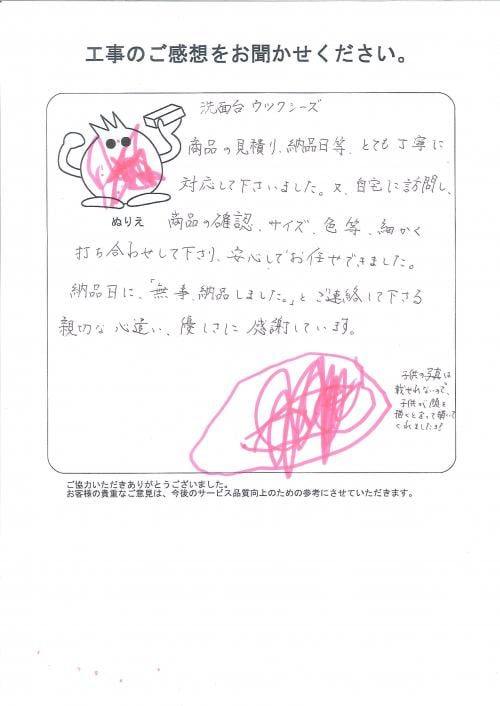 工事のご感想をお聞かせください。
洗面台 ウツクシーズ
商品の見積り、納品日等、とても丁寧に
対応して下さいました。又、自宅に訪問し、
ぬりえ
商品の確認、サイズ、色等、細かく
打ち合わせして下さり、安心してお任せできました。
納品日に、「無事、納品しました。」と ご連絡して下さる
親切な心遣い、優しさに 感謝しています。
子供の写真は
載せれないので、
子供が顔を
描くと言って頑いて
くれました
ご協力いただきありがとうございました。
お客様の貴重なご意見は、今後のサービス品質向上のための参考にさせていただきます。